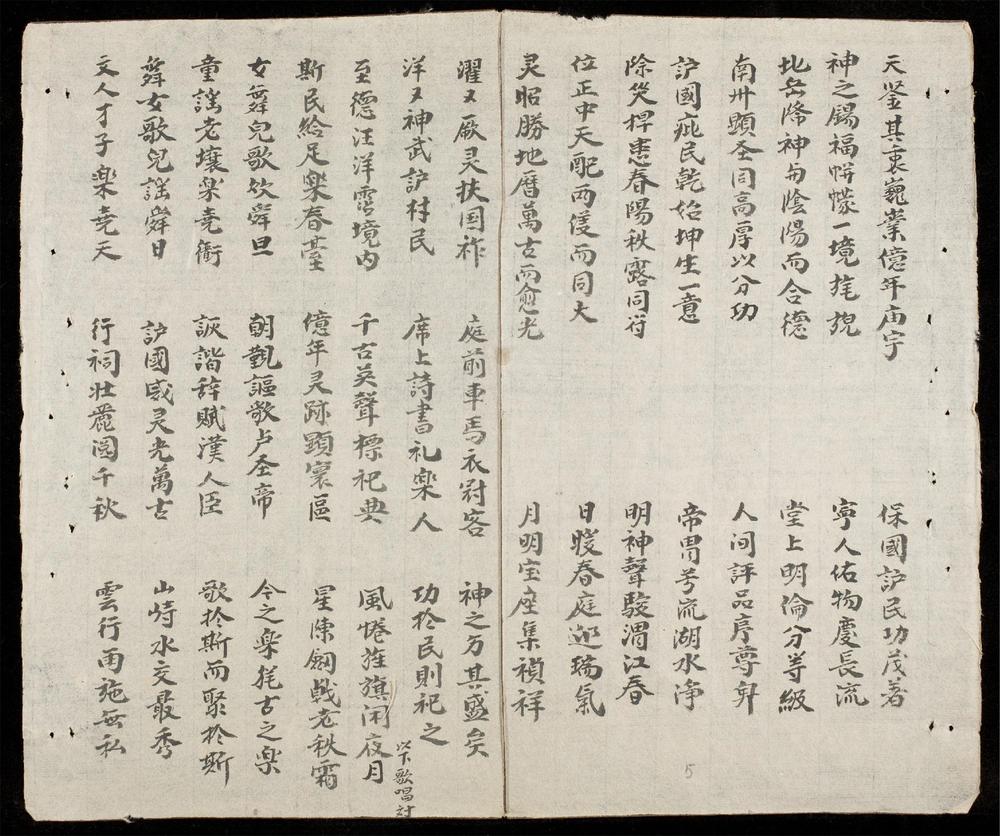 天鉴其衷巍業億年庙宇
保國护民功茂著
神之錫福帡幪一境旄旎
寧人佑物慶長流
北岳降神与陰陽而合德
堂上明倫分等級
南卅顕圣同高厚以分功
人间評品序尊卑
护國庇民乾始坤生一意
帝胄芳流湖水浄
除灾捍患春陽秋露同符
明神聲駿渭江春
位正中天配两仪而同大
日暖春庭迎瑞氣
灵昭勝地曆萬古而愈光
月明宝座集禎祥
濯又厥灵扶国祚
庭前車馬衣冠客
神之为其盛矣
洋又神武护村民
席上詩書礼楽人
功於民則祀之
以下歌唱対
至德汪洋霑境内
千古英聲標祀典
風惓旌旗闲夜月
斯民給足楽春臺
億年灵跡顕寰區
星陳劍戟老秋霜
女舞兒歌欣舜旦
朝觐謳歌卢圣帝
今之楽犹古之楽
童謡老壤楽尭衢
詼諧辞賦漢人臣
歌於斯而聚於斯
舞女歌兒謡舜日
护國威灵光萬古
山峙水交最秀
文人才子楽尭天
行祠壮麗囶千秋
雲行雨施無私
5